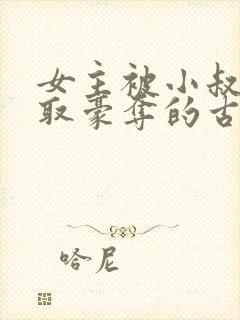 女主被小叔
取豪夺的古
哈尼